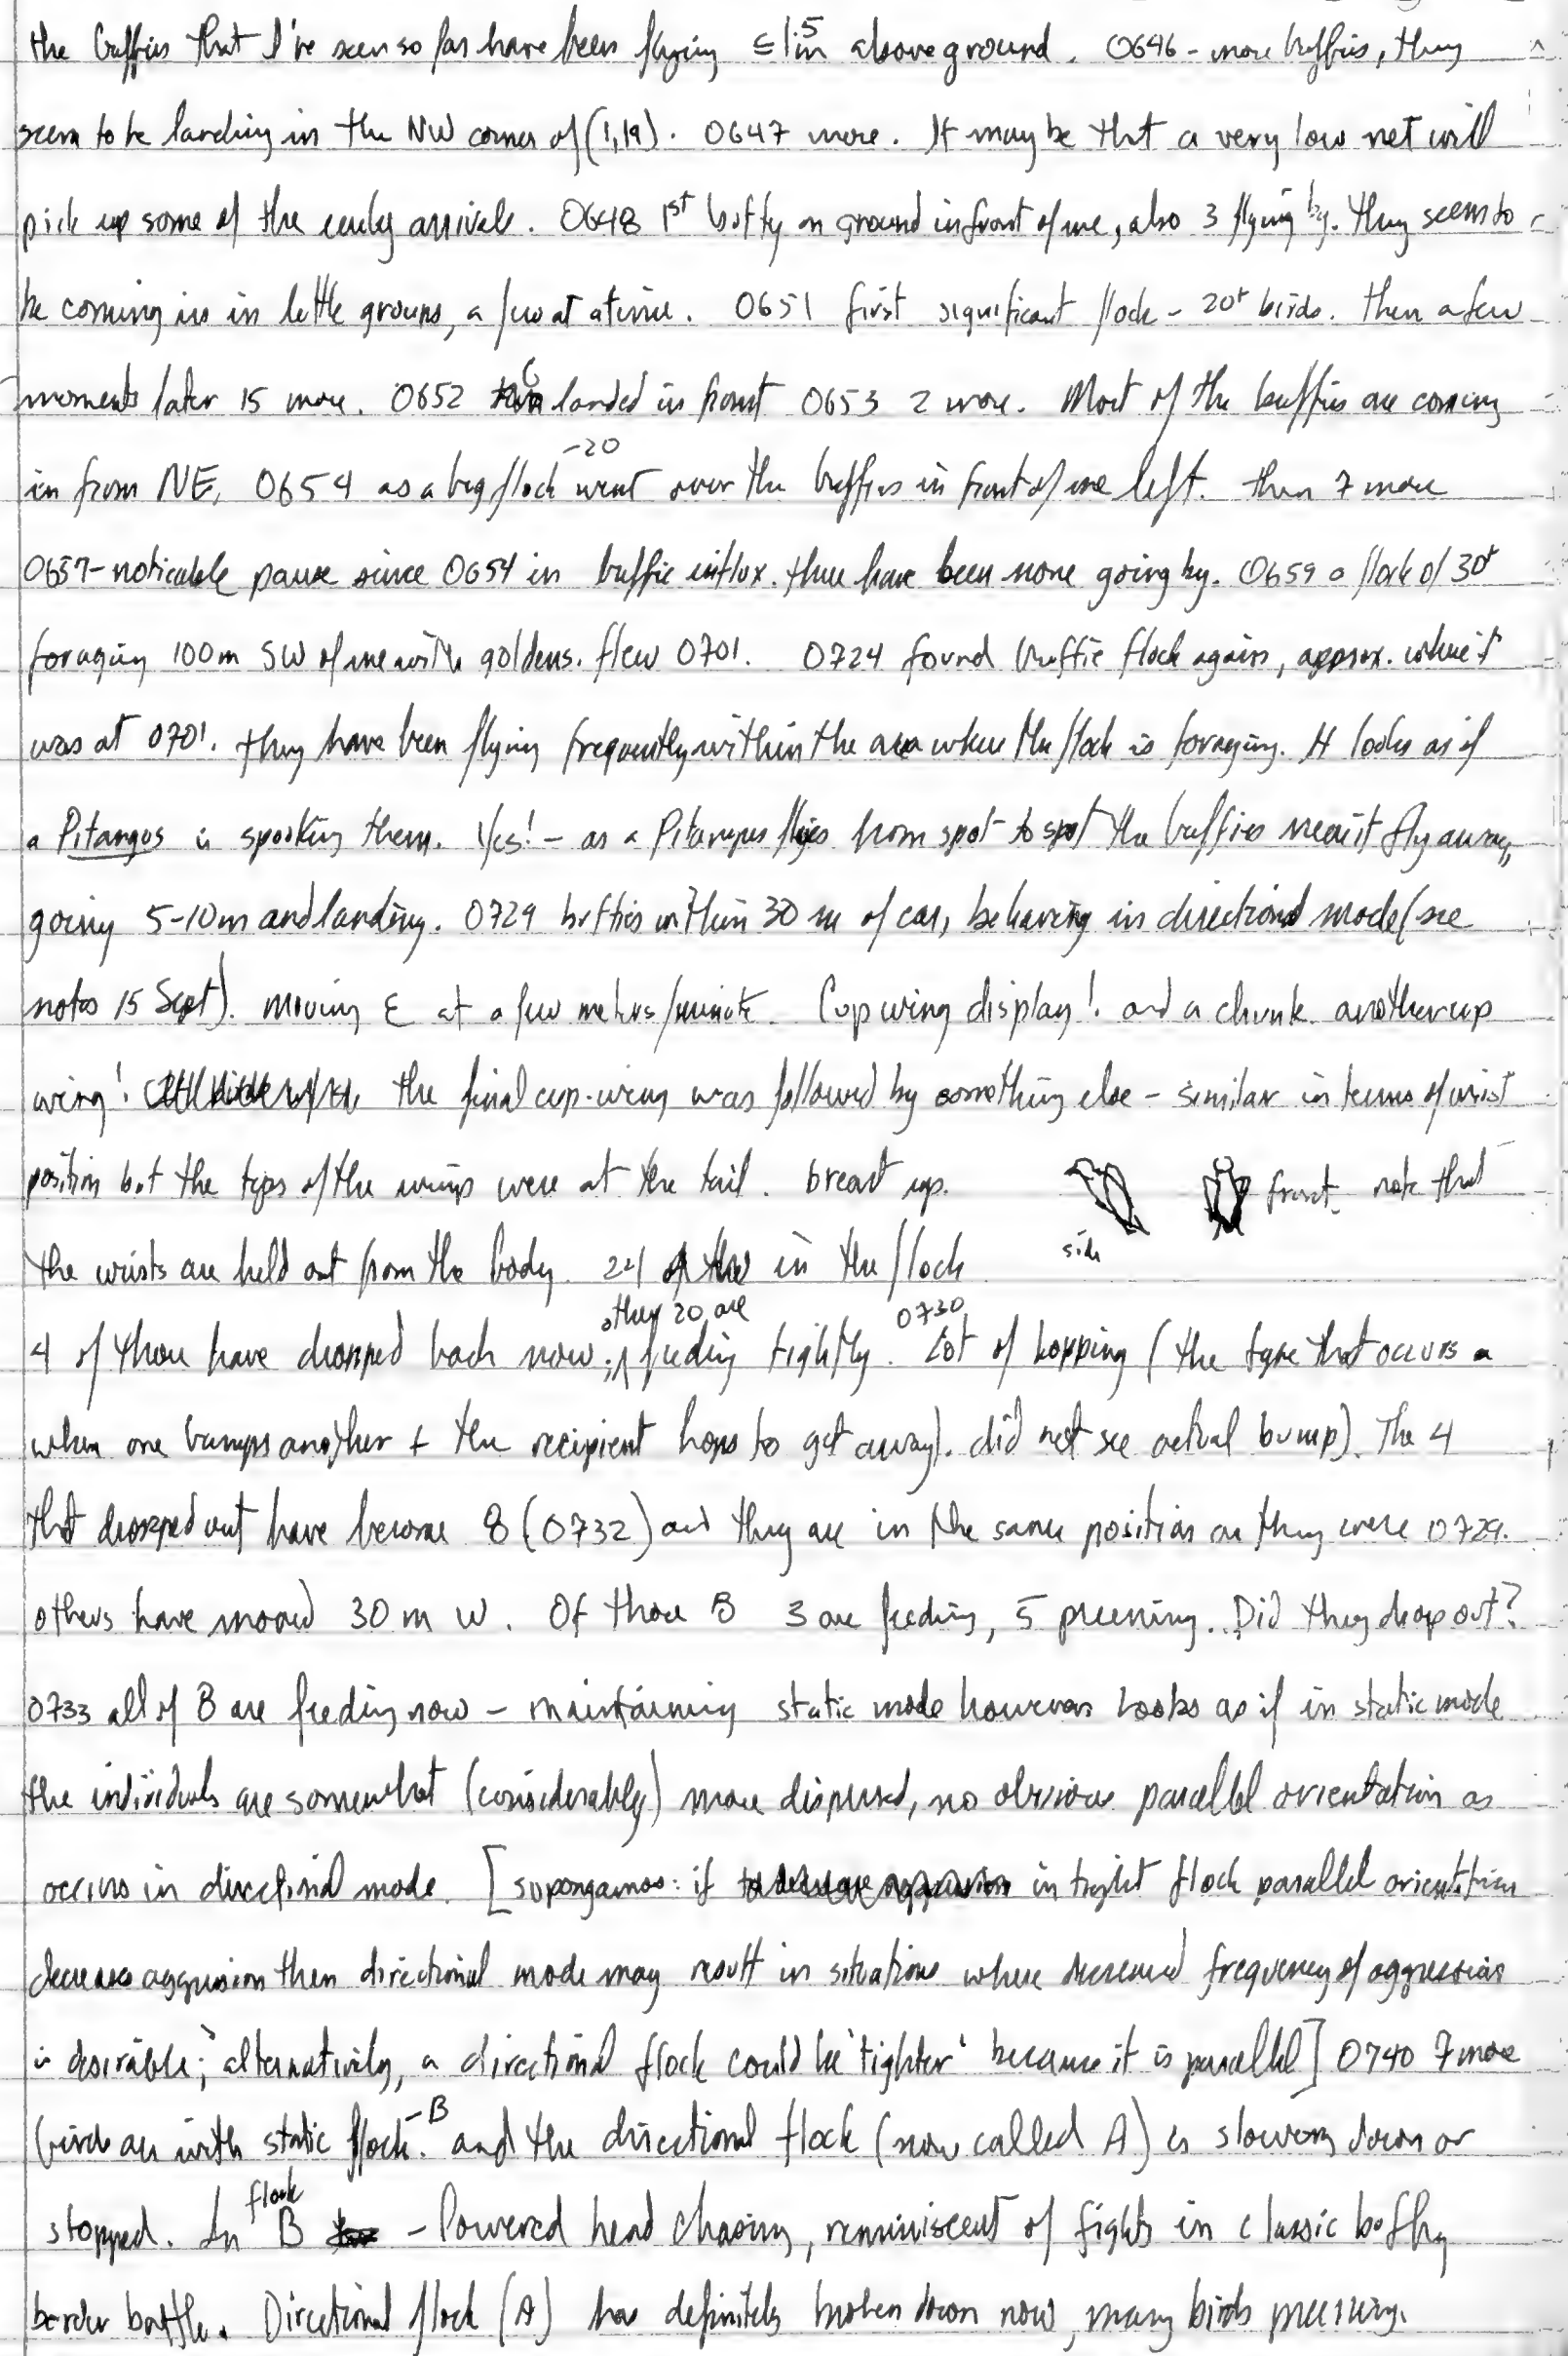 the buffies that I've seen so far have been flying ≤1.5m above ground. 0646 - more buffies, they
seem to be landing in the NW corner of (1,19). 0647 more. It may be that a very low net will
pick up some of the early arrivals. 0648 1st buffy on ground in front of me, also 3 flying by. They seem to
be coming in in little groups, a few at a time. 0651 first significant flock - 20+ birds. Then a few
moments later 15 more. 0652 6 landed in front 0653 2 more. Most of the buffies are coming
in from NE. 0654 as a big flock -20 went over the buffies in front of me left. then 7 more
0657 - noticable pause since 0654 in buffie influx. there have been none going by. 0659 a flock of 30+
foraging 100m SW of me with goldens. flew 0701. 0724 found buffie flock again, approx. where it
was at 0701. They have been flying frequently within the area where the flock is foraging. It looks as if
a Pitangus is spooking them. Yes! - as a Pitangus flies from spot to spot the buffies near it fly away,
going 5-10m and landing. 0729 buffies within 30 m of car, behaving in directional mode (see
notes 15 Sept). Moving E at a few meters/minute. Cup wing display! and a chunk. another cup
wing! the final cup-wing was followed by something else - similar in terms of wrist
position but the tips of the wings were at the tail. breast up. side front. note that
the wrists are held out from the body. 24 in the flock
4 of those have dropped back now; other 20 are feeding tightly. 0730 Lot of hopping (the type that occurs
when one bumps another + the recipient hops to get away). did not see actual bump). The 4
that dropped out have become 8 (0732) and they are in the same position as they were 0729.
others have moved 30 m W. Of those 8 3 are feeding, 5 preening. Did they drop out?
0733 all of 8 are feeding now - maintaining static mode however. Looks as if in static mode
the individuals are somewhat (considerably) more dispersed, no obvious parallel orientation as
occurs in directional mode. [supongamos: if in tight flock parallel orientation
decreases aggression then directional mode may result in situations where decreased frequency of aggression
is desirable; alternatively, a directional flock could be 'tighter' because it is parallel] 0740 7 more
birds are with static flock - B and the directional flock (now called A) is slowing down or
stopped. In flock B - Lowered head chasing, reminiscent of fights in classic buffy
border battle. Directional flock (A) has definitely broken down now, many birds preening.